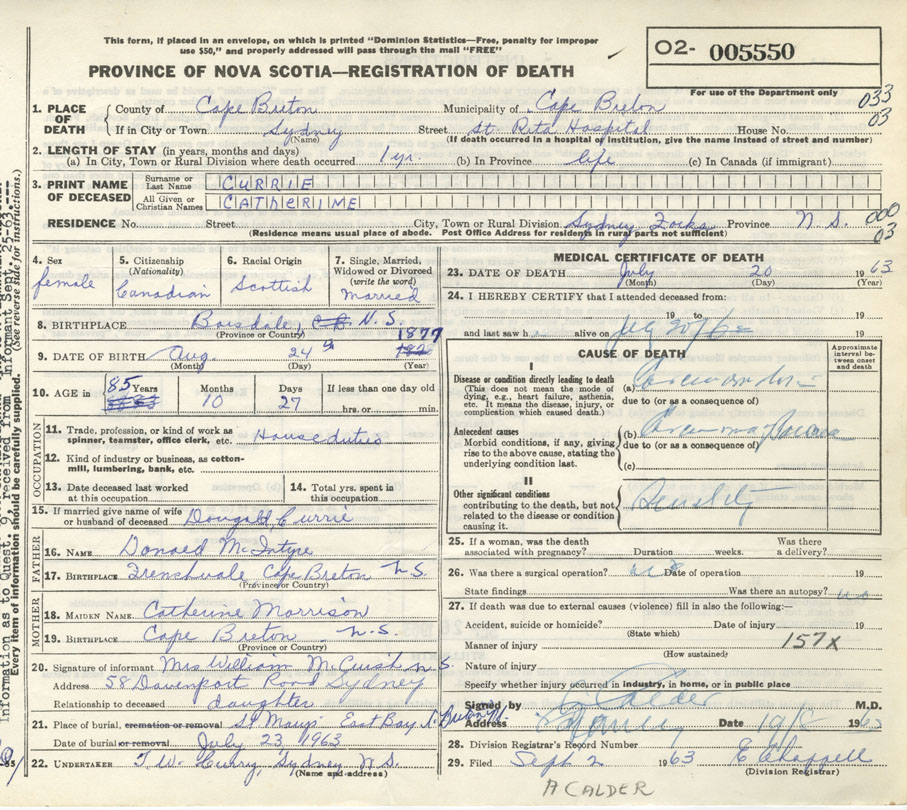 This form, if placed in an envelope, on which is printed "Dominion Statistics—Free, penalty for improper
use $50," and properly addressed will pass through the mail "FREE"
O2- 005550
For use of the Department only
PROVINCE OF NOVA SCOTIA—REGISTRATION OF DEATH
033
03
1. PLACE OF DEATH { County of Cape Breton Municipality of Cape Breton
If in City or Town Sydney (Name) Street St. Rita Hospital House No.
(If death occurred in a hospital or institution, give the name instead of street and number)
2. LENGTH OF STAY (in years, months and days)
(a) In City, Town or Rural Division where death occurred 1 yr. (b) In Province life (c) In Canada (if immigrant)
3. PRINT NAME OF DECEASED { Surname or Last Name CURRIE
All Given or Christian Names CATHERINE
RESIDENCE No. Street City, Town or Rural Division Sydney Province N S. 000
03
(Residence means usual place of abode. Post Office Address for residents in rural parts not sufficient)
4. Sex female
5. Citizenship (Nationality) Canadian
6. Racial Origin Scottish
7. Single, Married, Widowed or Divorced (write the word) Married
8. BIRTHPLACE Boisdale, C.B. N.S.
(Province or Country)
1877
9. DATE OF BIRTH Aug. 24 th
(Month) (Day) (Year)
10. AGE in 85 Years Months 10 Days 27 If less than one day old
hrs. or min.
OCCUPATION
11. Trade, profession, or kind of work as spinner, teamster, office clerk, etc. House duties
12. Kind of industry or business, as cotton-mill, lumbering, bank, etc.
13. Date deceased last worked at this occupation
14. Total yrs. spent in this occupation
15. If married give name of wife or husband of deceased Dougald Currie
FATHER
16. NAME Donald McIntyre
17. BIRTHPLACE Frenchvale Cape Breton N.S.
(Province or Country)
MOTHER
18. MAIDEN NAME Catherine Morrison
19. BIRTHPLACE Cape Breton N.S.
(Province or Country)
20. Signature of informant Mrs William McCuish N.S.
Address 58 Davenport Road Sydney
Relationship to deceased daughter
21. Place of burial, cremation or removal St Marys East Bay
Date of burial or removal July 23 1963
22. UNDERTAKER T.W. Curry, Sydney N.S.
(Name and address)
MEDICAL CERTIFICATE OF DEATH
23. DATE OF DEATH July 20 1963
(Month) (Day) (Year)
24. I HEREBY CERTIFY that I attended deceased from:
19 to 19
and last saw h alive on 19
CAUSE OF DEATH
Approximate interval between onset and death
I
Disease or condition directly leading to death (This does not mean the mode of dying, e.g., heart failure, asthenia, etc. It means the disease, injury, or complication which caused death.)
(a)
due to (or as a consequence of)
Antecedent causes
Morbid conditions, if any, giving rise to the above cause, stating the underlying condition last.
(b)
due to (or as a consequence of)
(c)
II
Other significant conditions contributing to the death, but not related to the disease or condition causing it.
Senility
25. If a woman, was the death associated with pregnancy? Duration weeks. Was there a delivery?
26. Was there a surgical operation? Date of operation 19
State findings Was there an autopsy? no
27. If death was due to external causes (violence) fill in also the following:—
Accident, suicide or homicide? Date of injury 19
(State which)
Manner of injury 157X
(How sustained)
Nature of injury
Specify whether injury occurred in industry, in home, or in public place
Signed by Calder M.D.
Address Date 19
28. Division Registrar's Record Number
29. Filed Sept 2 1963 E Chappell
(Division Registrar)
A CALDER
Information as to Quest. 9, received from informant Sept. 25-63.---
Every item of information should be carefully supplied. (See reverse side for instructions.)